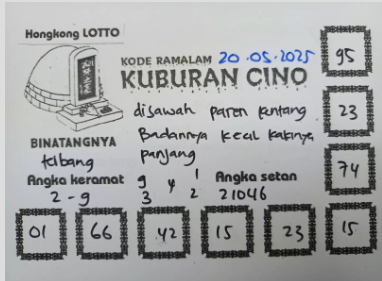 Hongkong LOTTO
KODE RAMALAN 20.05.2025
KUBURAN CINO
95
disawah paren kentang
23
Badannya kecil kakinya
panjang
BINATANGNYA
74
Angka keramat 9 4 1 Angka setan
2-9 3 2 21046
01 66 42 15 23 15